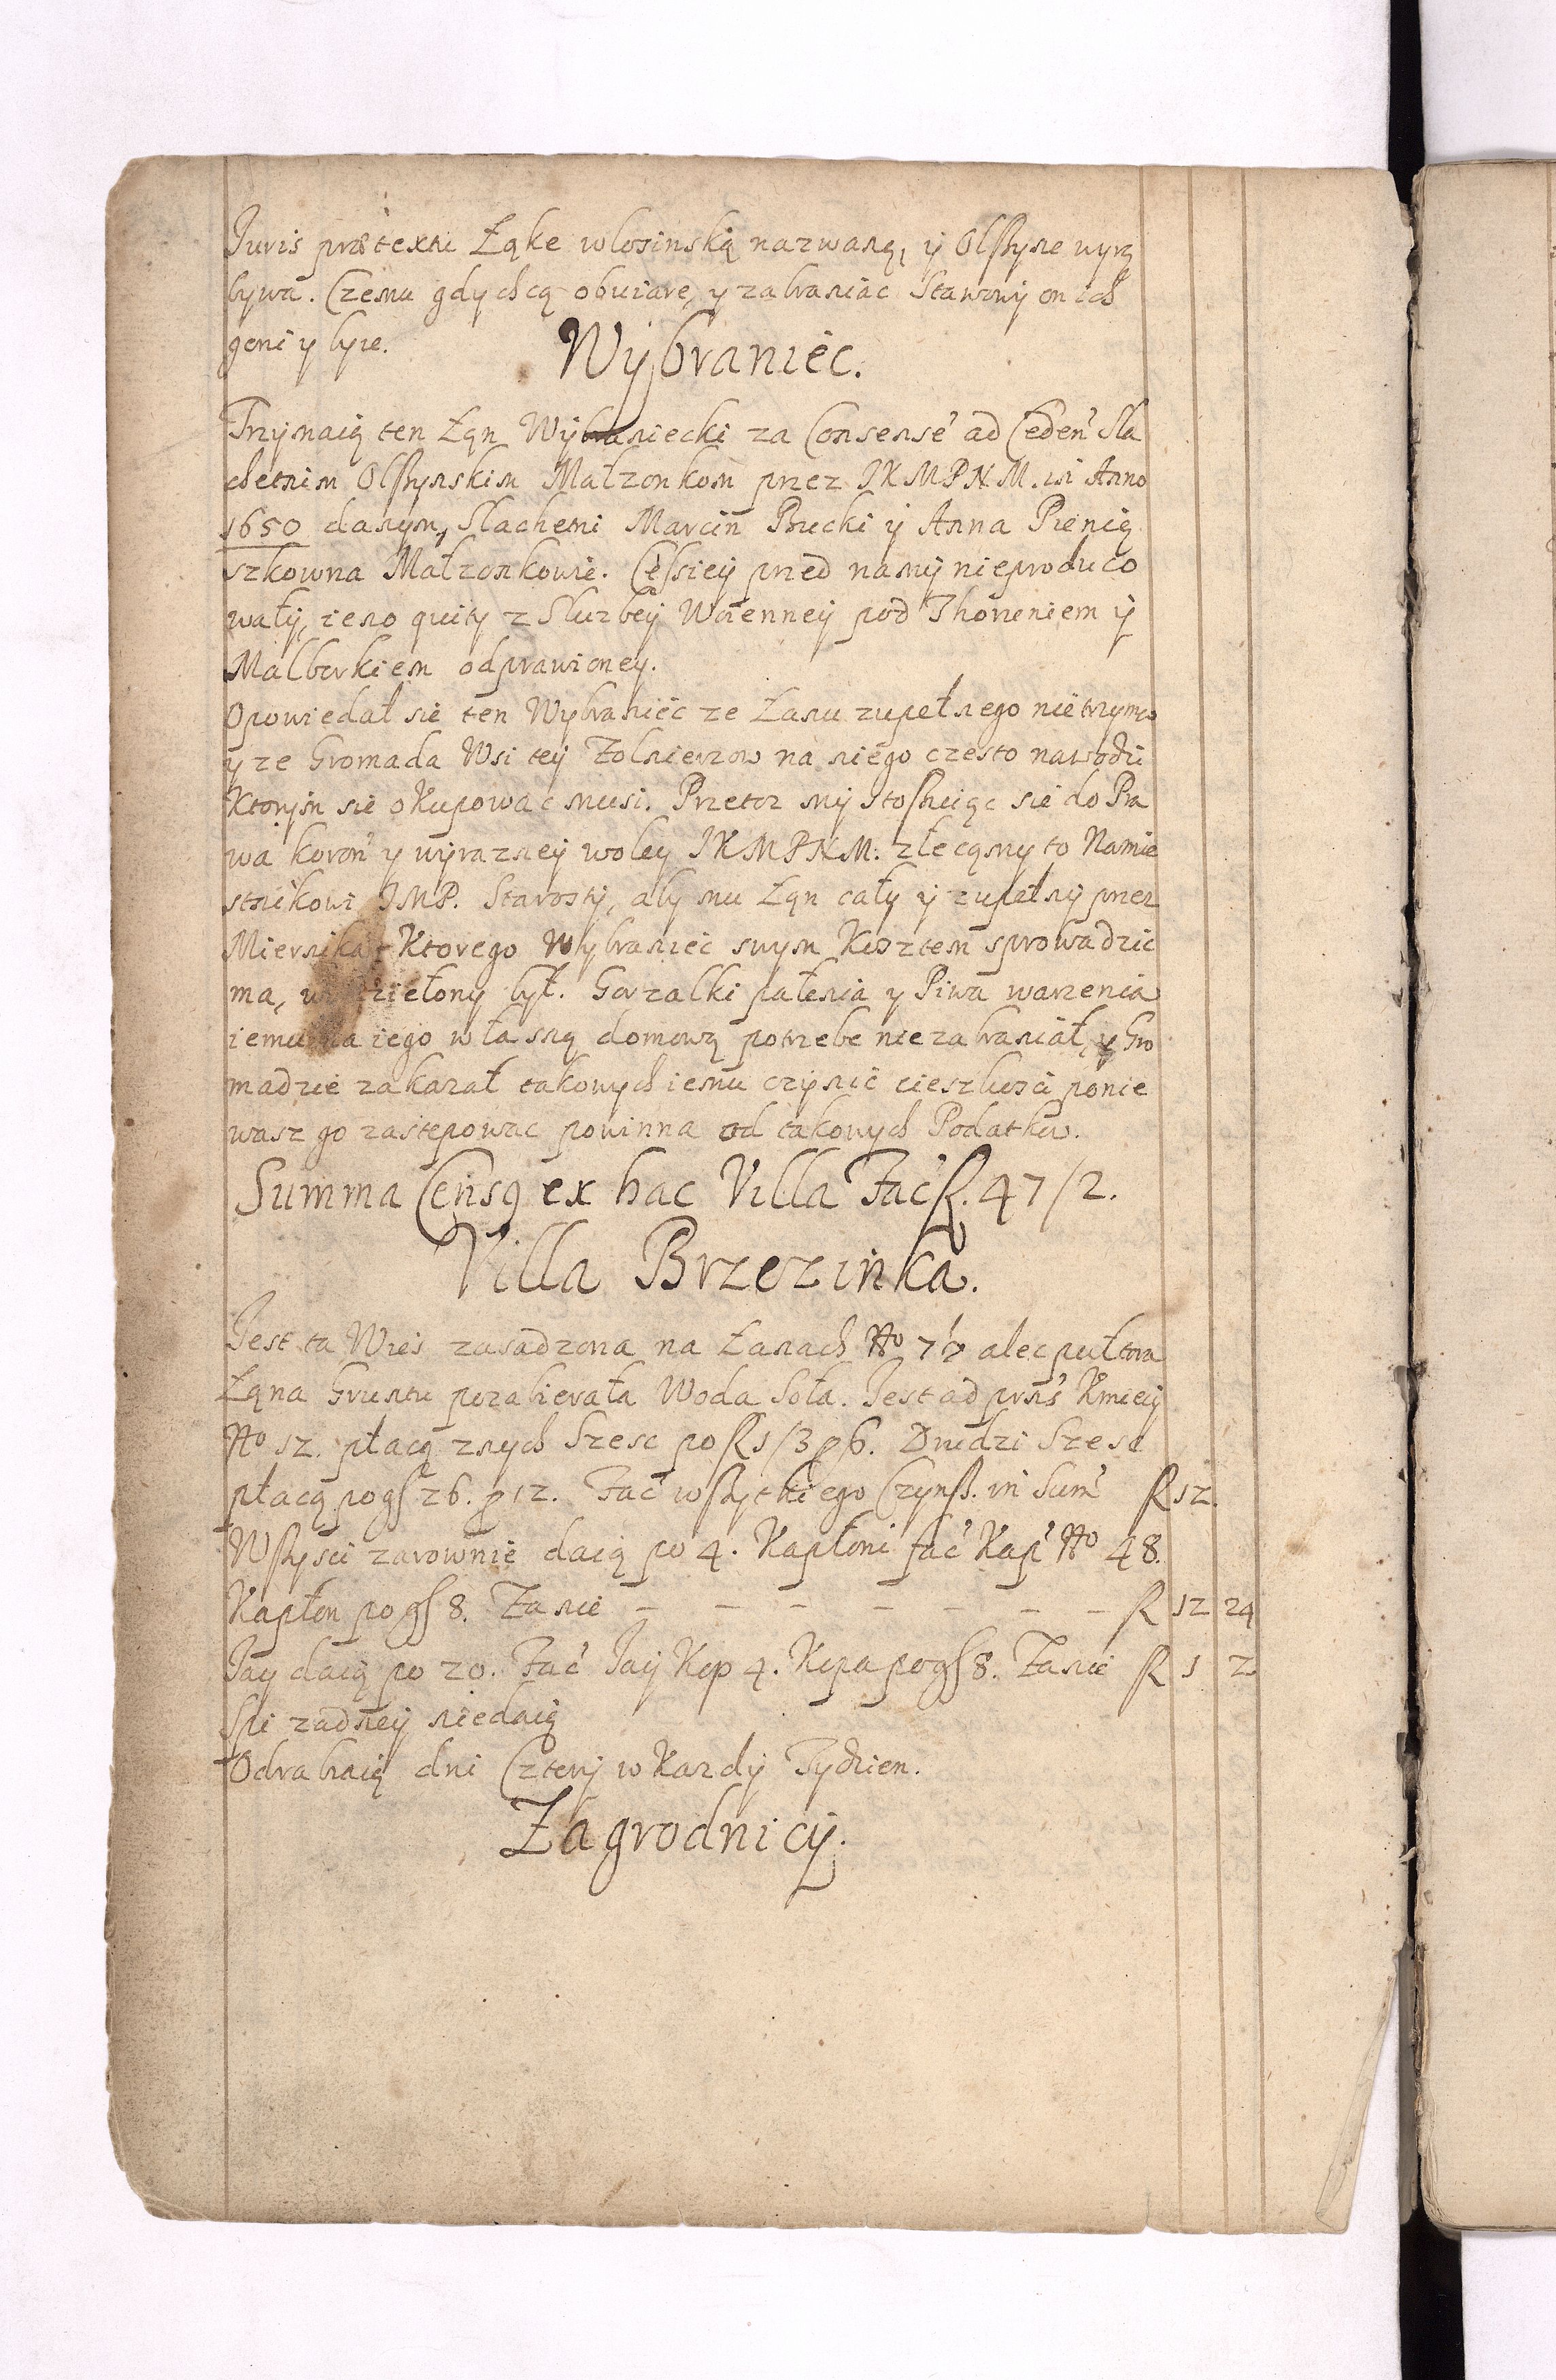 Juris prætextu Łąke wlosinską nazwaną, y Olszyne wyrą
bywa. Czemu gdy chcą obuiare, y zabraniac Stawowy on ich
goni y bije.
Wÿbraniec.
Trzymaią ten Łąn Wÿbraniecki za Consense ad Ceden Sla
chetnim Olszynskim Małzonkom przez JKMPNM. in Anno
1650 danym, Slachetni Marcin Bucki ÿ Anna Pienią
szkowna Małzonkowie. Cessieÿ przed namÿ nieproduco
walÿ, ieno quitÿ z Sluzbeÿ Woienneÿ pod Thoruniem ÿ
Malborkiem odprawioney.
Opowiedał sie ten Wybraniec ze Łanu zupełnego nie trzyma
y ze Gromada Wsi teÿ Zolnierzow na niego czesto nawodzi
Ktorÿm sie okupowac musi. Przetoz mÿ stosuiąc sie do Pra
wa koron y wyrazneÿ woley JKMPNM. zlecamy to Namie
stnikowi JMP. Starostÿ, aby mu Łąn całÿ ÿ zupełnÿ przez
Miernika, Ktorego Wybraniec swym Kosztem sprowadzic
ma, wydzielony był. Gorzalki palenia y Piwa warzenia
iemu na iego własną domową potrzebe nie zabraniał, y Gro
madzie zakazał takowych iemu czynic cieszkosci ponie
wasz go zastepowac powinna od takowych Podatkow.
Summa Censq ex hac Villa Fac fl. 47/2.
Villa Brzezinka.
Jest ta Wies zasadzona na Łanach No 7½ alec pułtora
Łąna Gruntu pozabierała Woda Soła. Jest ad prns Kmiecÿ
No 12. płacą znych Szesc po fl 1/3 p 6. Drudzi Szesc
płacą po gs 26. p 12. Fac wszytkiego Czynsz. in Sum fl 12.
Wszysci zarownie daią po 4. Kapłoni fac Kap No 48.
Kapłon po gs 8. Za nie – – – – – – – fl 12 24
Jay daią po 20. Fac Jaÿ Kop 4. Kopa po gs 8. Za nie fl 1 2
Spi zadneÿ niedaią
Odrabiaią dni Czterÿ w Kazdÿ Tydzien.
Zagrodnicÿ.